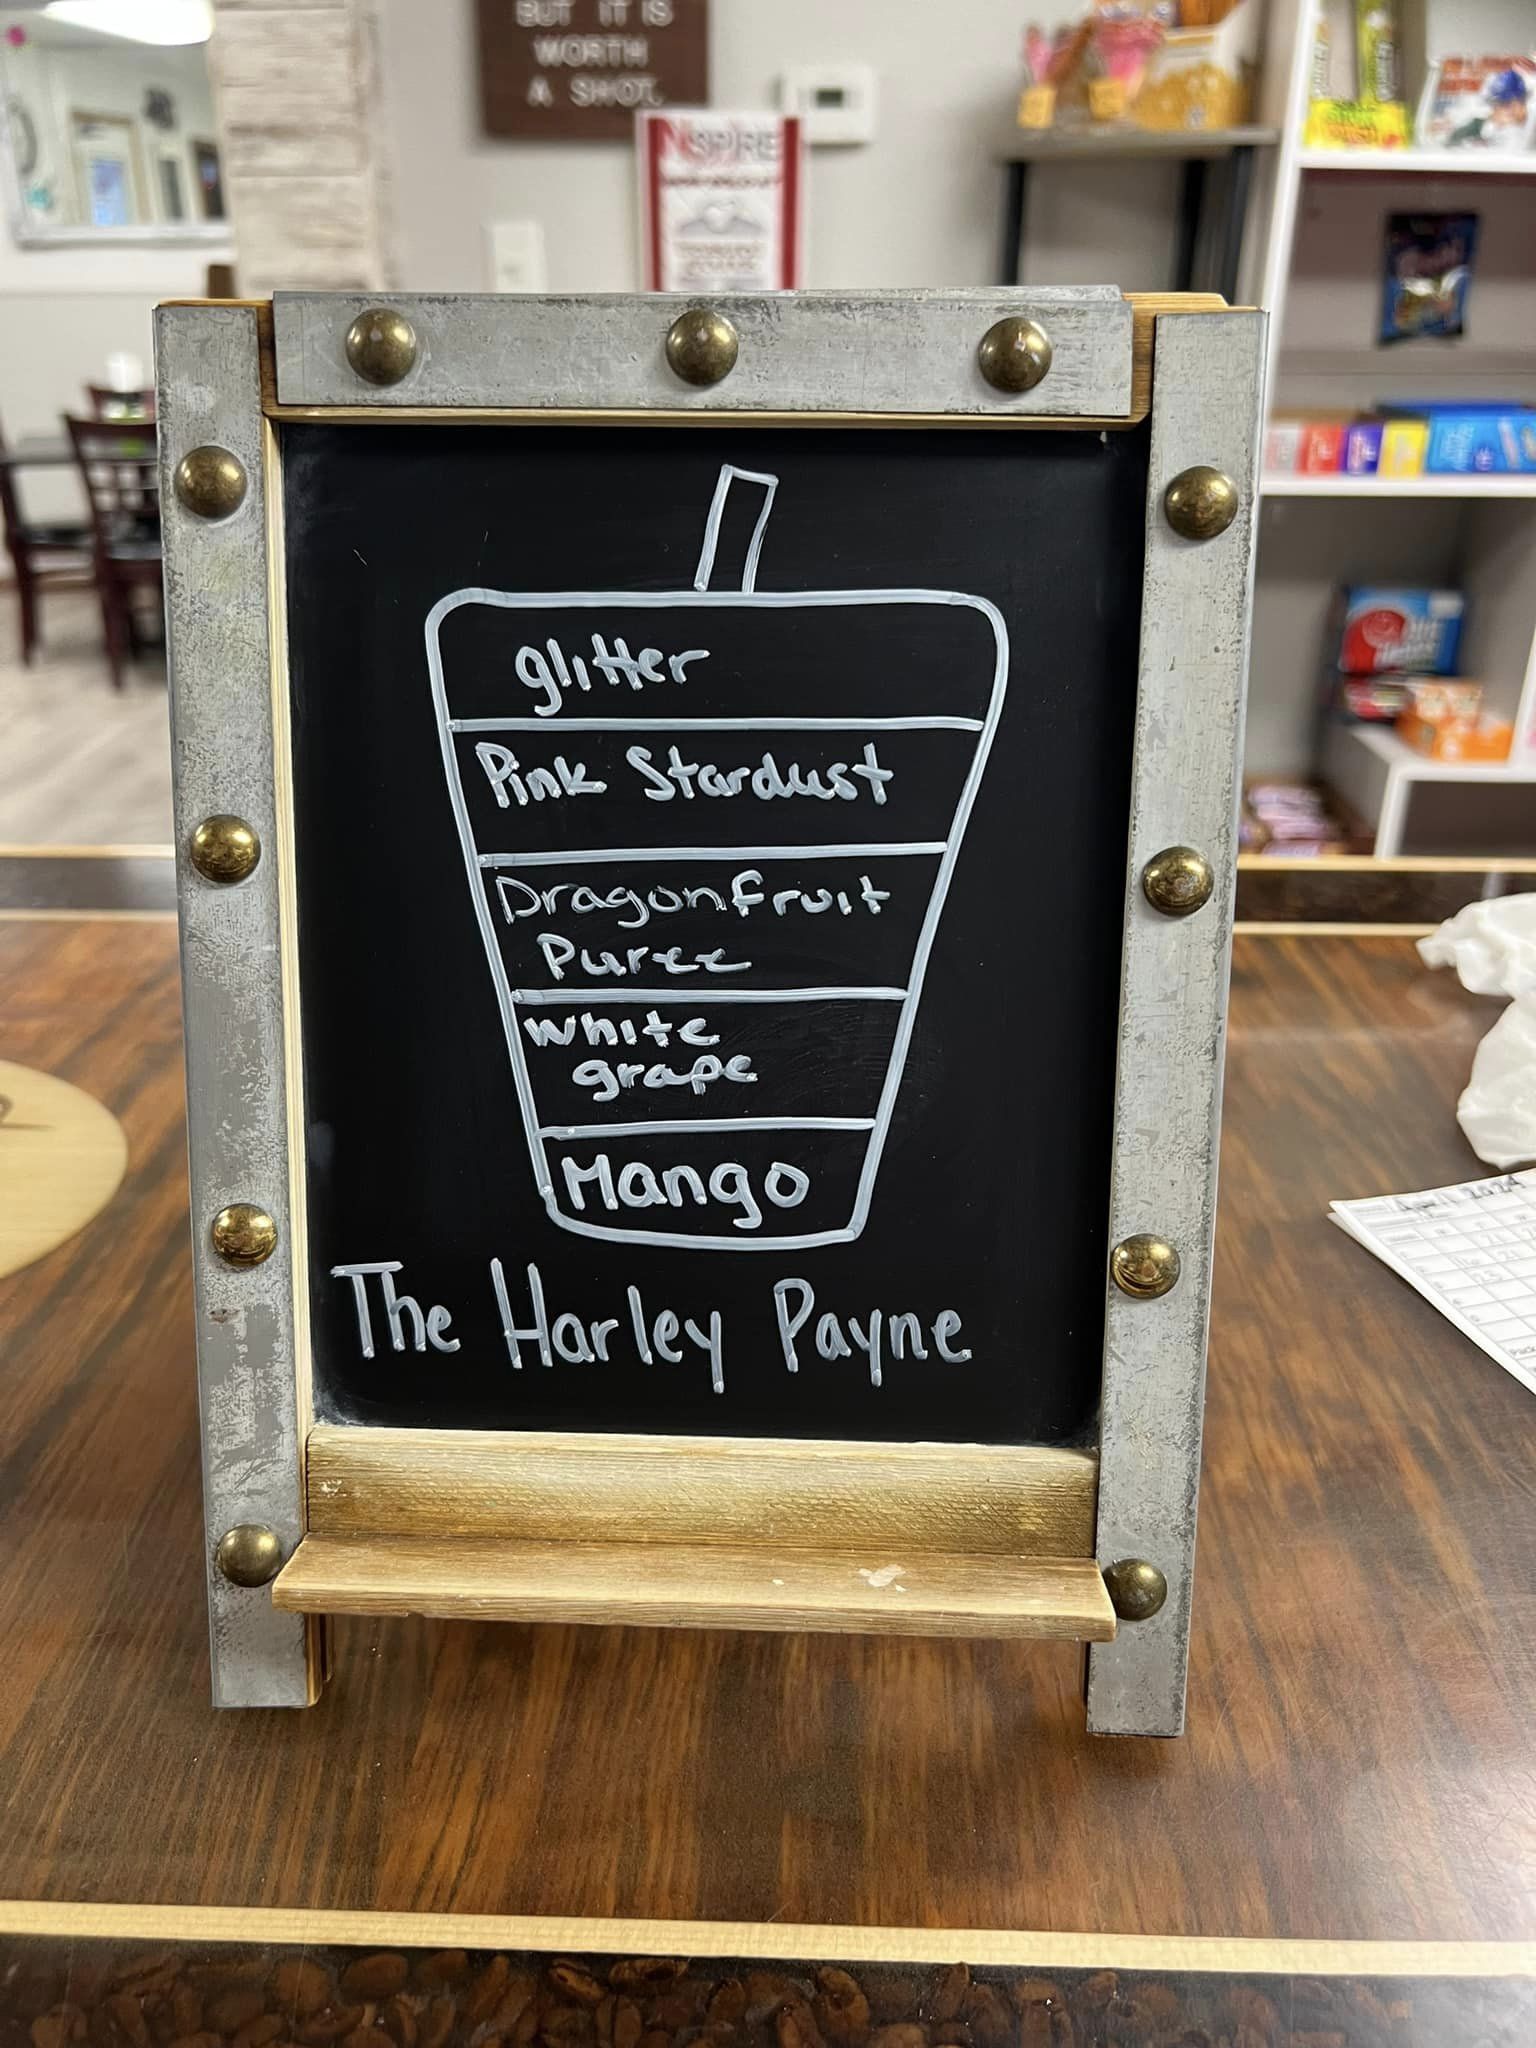 BUT IT IS
WORTH
A SHOT.
NSPIRE
glitter
Pink Stardust
Dragonfruit
Puree
white
grape
Mango
The Harley Payne
April 2024